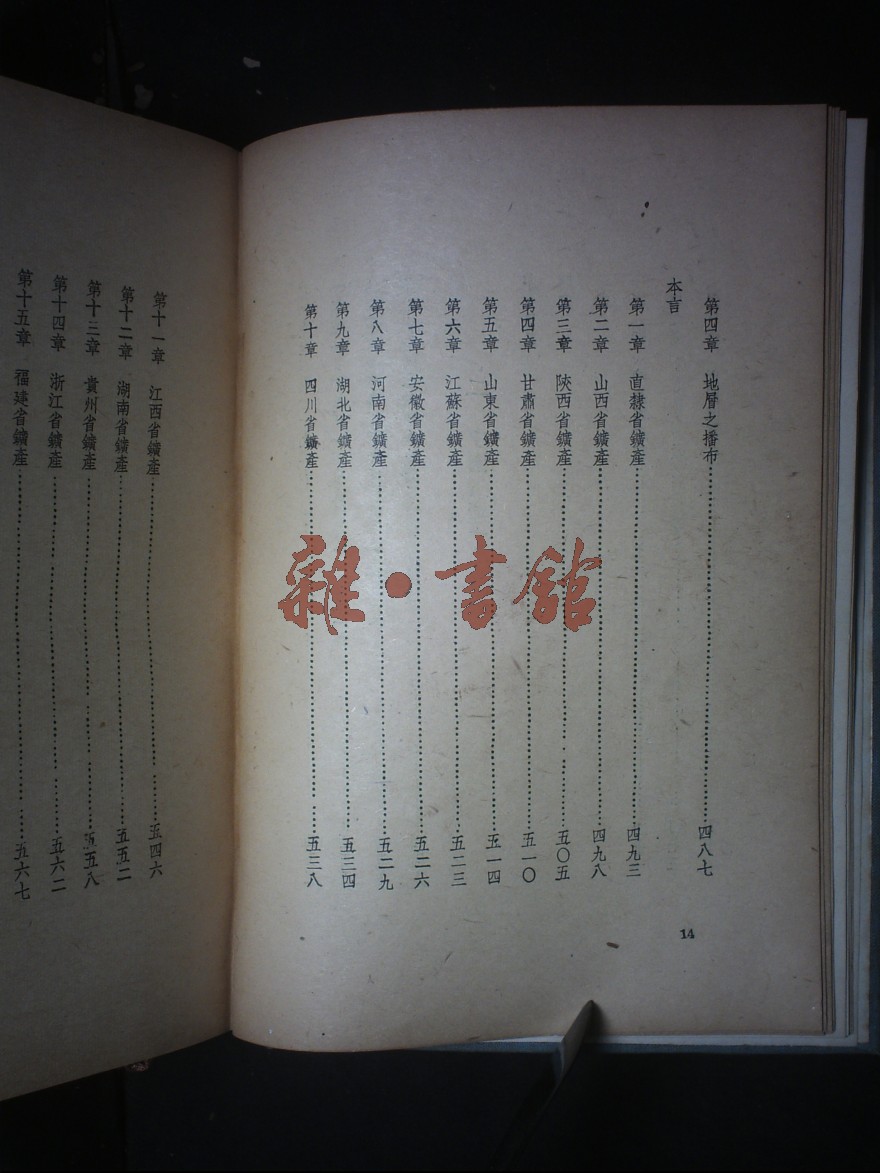 第四章 地層之播布……四八七
本言
第一章 直隸省鑛產……四九三
第二章 山西省鑛產……四九八
第三章 陝西省鑛產……五〇五
第四章 甘肅省鑛產……五一〇
第五章 山東省鑛產……五一四
第六章 江蘇省鑛產……五二三
第七章 安徽省鑛產……五二六
第八章 河南省鑛產……五二九
第九章 湖北省鑛產……五三四
第十章 四川省鑛產……五三八
14
第十一章 江西省鑛產……五四六
第十二章 湖南省鑛產……五五二
第十三章 貴州省鑛產……五五八
第十四章 浙江省鑛產……五六二
第十五章 福建省鑛產……五六七
雜·書館